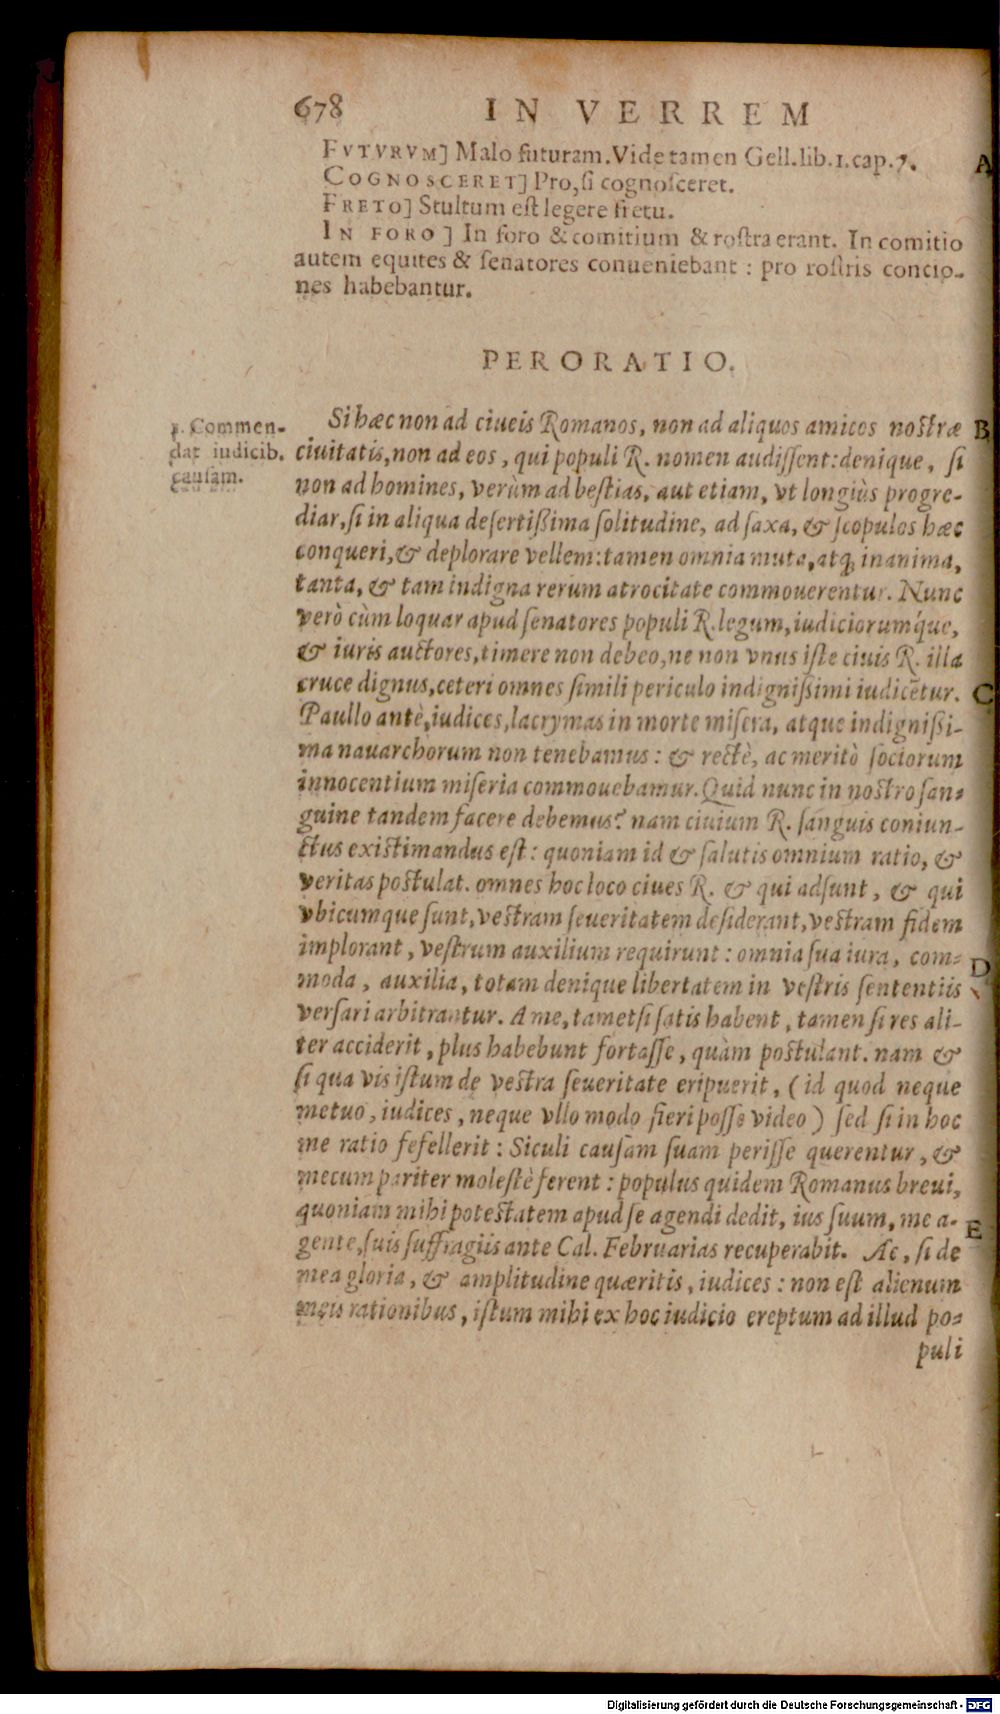 678 IN VERREM
FVTVRVM] Malo futuram. Vide tamen Gell. lib. 1. cap. 7. A
COGNOSCERET] Pro, ſi cognoſceret.
FRETO] Stultum eſt legere fretu.
IN FORO ] In foro & comitium & roſtra erant. In comitio
autem equites & ſenatores conueniebant : pro roſtris concio-
nes habebantur.
PERORATIO.
1. Commen-
dat iudicib.
cauſam.
Si hæc non ad ciueis Romanos, non ad aliquos amicos noſtræ B
ciuitatis, non ad eos, qui populi R. nomen audiſſent: denique, ſi
non ad homines, verùm ad beſtias, aut etiam, vt longiùs progre-
diar, ſi in aliqua deſertißima ſolitudine, ad ſaxa, & ſcopulos hæc
conqueri, & deplorare vellem: tamen omnia muta, atq; inanima,
tanta, & tam indigna rerum atrocitate commouerentur. Nunc
verò cùm loquar apud ſenatores populi R. legum, iudiciorumq́ue,
& iuris auctores, timere non debeo, ne non vnus iſte ciuis R. illa
cruce dignus, ceteri omnes ſimili periculo indignißimi iudicētur. C
Paullo antè, iudices, lacrymas in morte miſera, atque indignißi-
ma nauarchorum non tenebamus : & rectè, ac meritò ſociorum
innocentium miſeria commouebamur. Quid nunc in noſtro ſan-
guine tandem facere debemus? nam ciuium R. ſanguis coniun-
ctus exiſtimandus eſt: quoniam id & ſalutis omnium ratio, &
veritas poſtulat. omnes hoc loco ciues R. & qui adſunt, & qui
vbicumque ſunt, veſtram ſeueritatem deſiderant, veſtram fidem
implorant, veſtrum auxilium requirunt : omnia ſua iura, com-
moda, auxilia, totam denique libertatem in veſtris ſententiis D
verſari arbitrantur. A me, tametſi ſatis habent, tamen ſi res ali-
ter acciderit, plus habebunt fortaſſe, quàm poſtulant. nam &
ſi qua vis iſtum de veſtra ſeueritate eripuerit, (id quod neque
metuo, iudices, neque vllo modo fieri poſſe video) ſed ſi in hoc
me ratio fefellerit : Siculi cauſam ſuam periſſe querentur, &
mecum pariter moleſtè ferent : populus quidem Romanus breui,
quoniam mihi poteſtatem apud ſe agendi dedit, ius ſuum, me a- E
gente, ſuis ſuffragiis ante Cal. Februarias recuperabit. Ac, ſi de
mea gloria, & amplitudine quæritis, iudices : non eſt alienum
meis rationibus, iſtum mihi ex hoc iudicio ereptum ad illud po-
puli
Digitalisierung gefördert durch die Deutsche Forschungsgemeinschaft - DFG